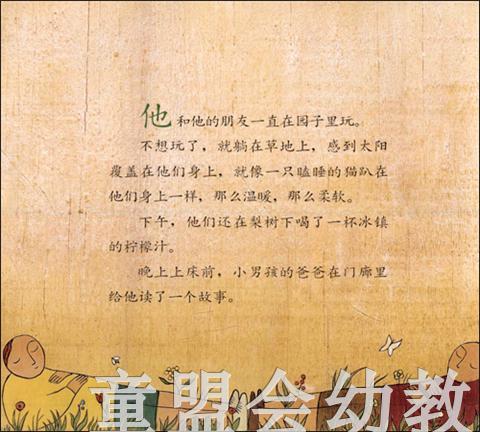 他和他的朋友一直在园子里玩。
不想玩了，就躺在草地上，感到太阳
覆盖在他们身上，就像一只瞌睡的猫趴在
他们身上一样，那么温暖，那么柔软。
下午，他们还在梨树下喝了一杯冰镇
的柠檬汁。
晚上上床前，小男孩的爸爸在门廊里
给他读了一个故事。
童盟会幼教